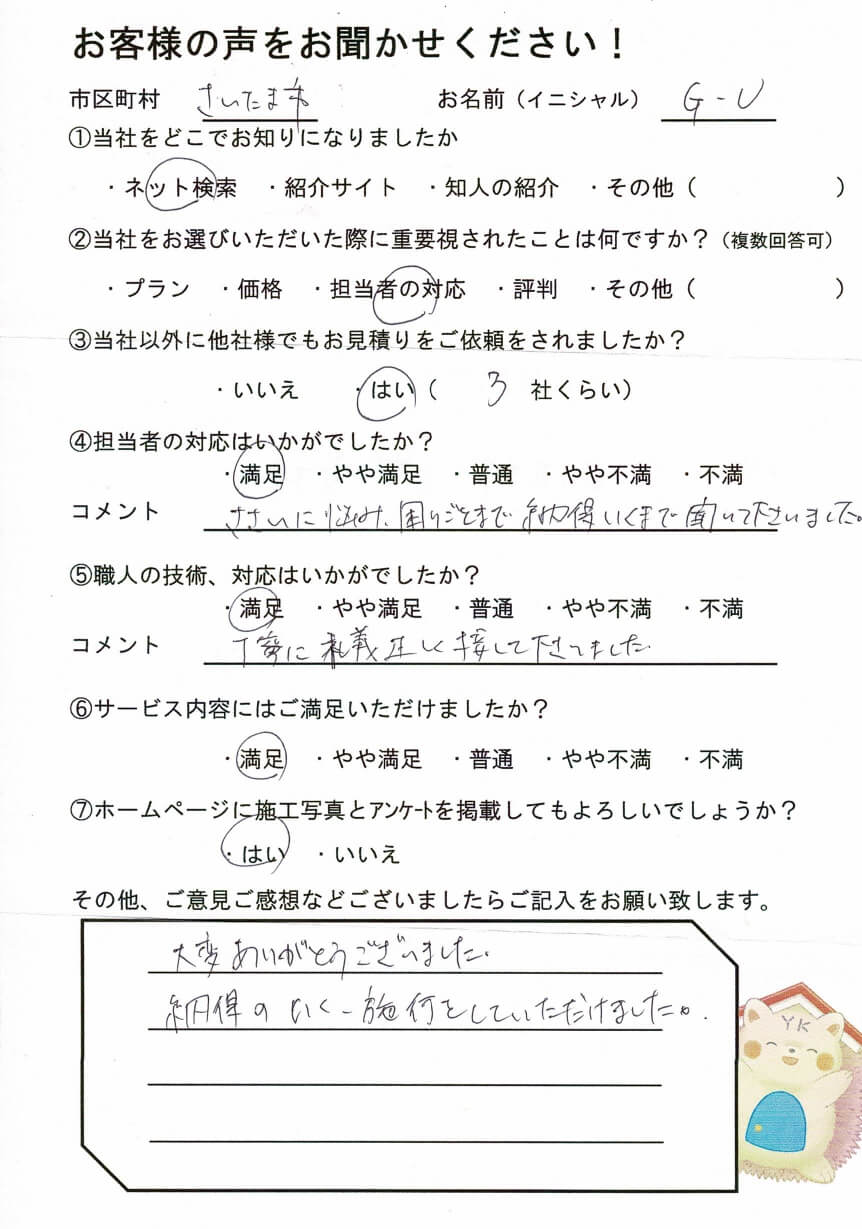 お客様の声をお聞かせください！
市区町村 さいたま市 お名前（イニシャル） G-U
①当社をどこでお知りになりましたか
・ネット検索 ・紹介サイト ・知人の紹介 ・その他（ ）
②当社をお選びいただいた際に重要視されたことは何ですか？（複数回答可）
・プラン ・価格 ・担当者の対応 ・評判 ・その他（ ）
③当社以外に他社様でもお見積りをご依頼をされましたか？
・いいえ ・はい（ 3 社くらい）
④担当者の対応はいかがでしたか？
・満足 ・やや満足 ・普通 ・やや不満 ・不満
コメント ささいに悩み、困りごとまで納得いくまで聞いて下さいました。
⑤職人の技術、対応はいかがでしたか？
・満足 ・やや満足 ・普通 ・やや不満 ・不満
コメント 丁寧に礼義正しく接して下さいました
⑥サービス内容にはご満足いただけましたか？
・満足 ・やや満足 ・普通 ・やや不満 ・不満
⑦ホームページに施工写真とｱﾝｹｰﾄを掲載してもよろしいでしょうか？
・はい ・いいえ
その他、ご意見ご感想などございましたらご記入をお願い致します。
大変ありがとうございました.
納得のいく施何をしていただけました。
YK